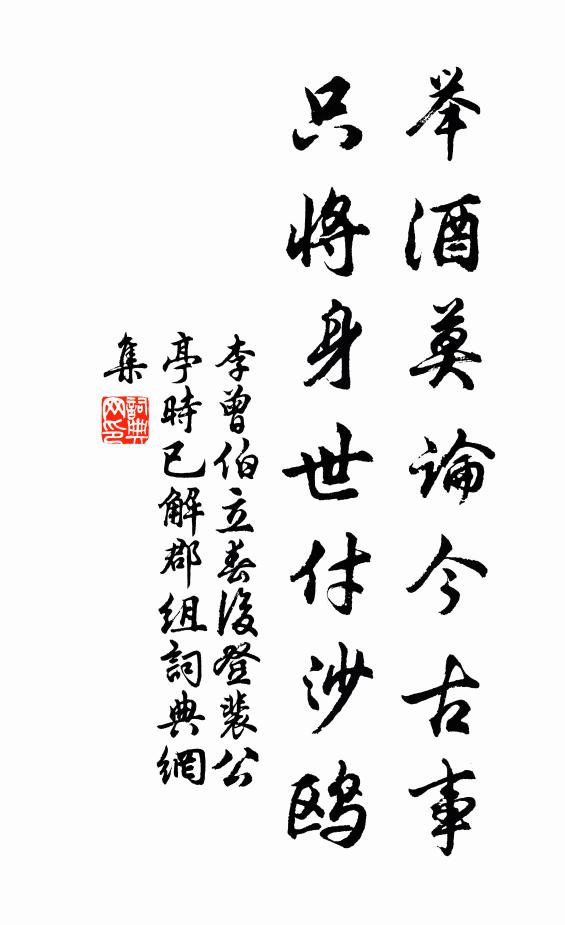 举酒莫论今古事
只将身世付沙鸥
李曾伯立春後登裴公
亭時已解郡组詞典網
集
詞典網印